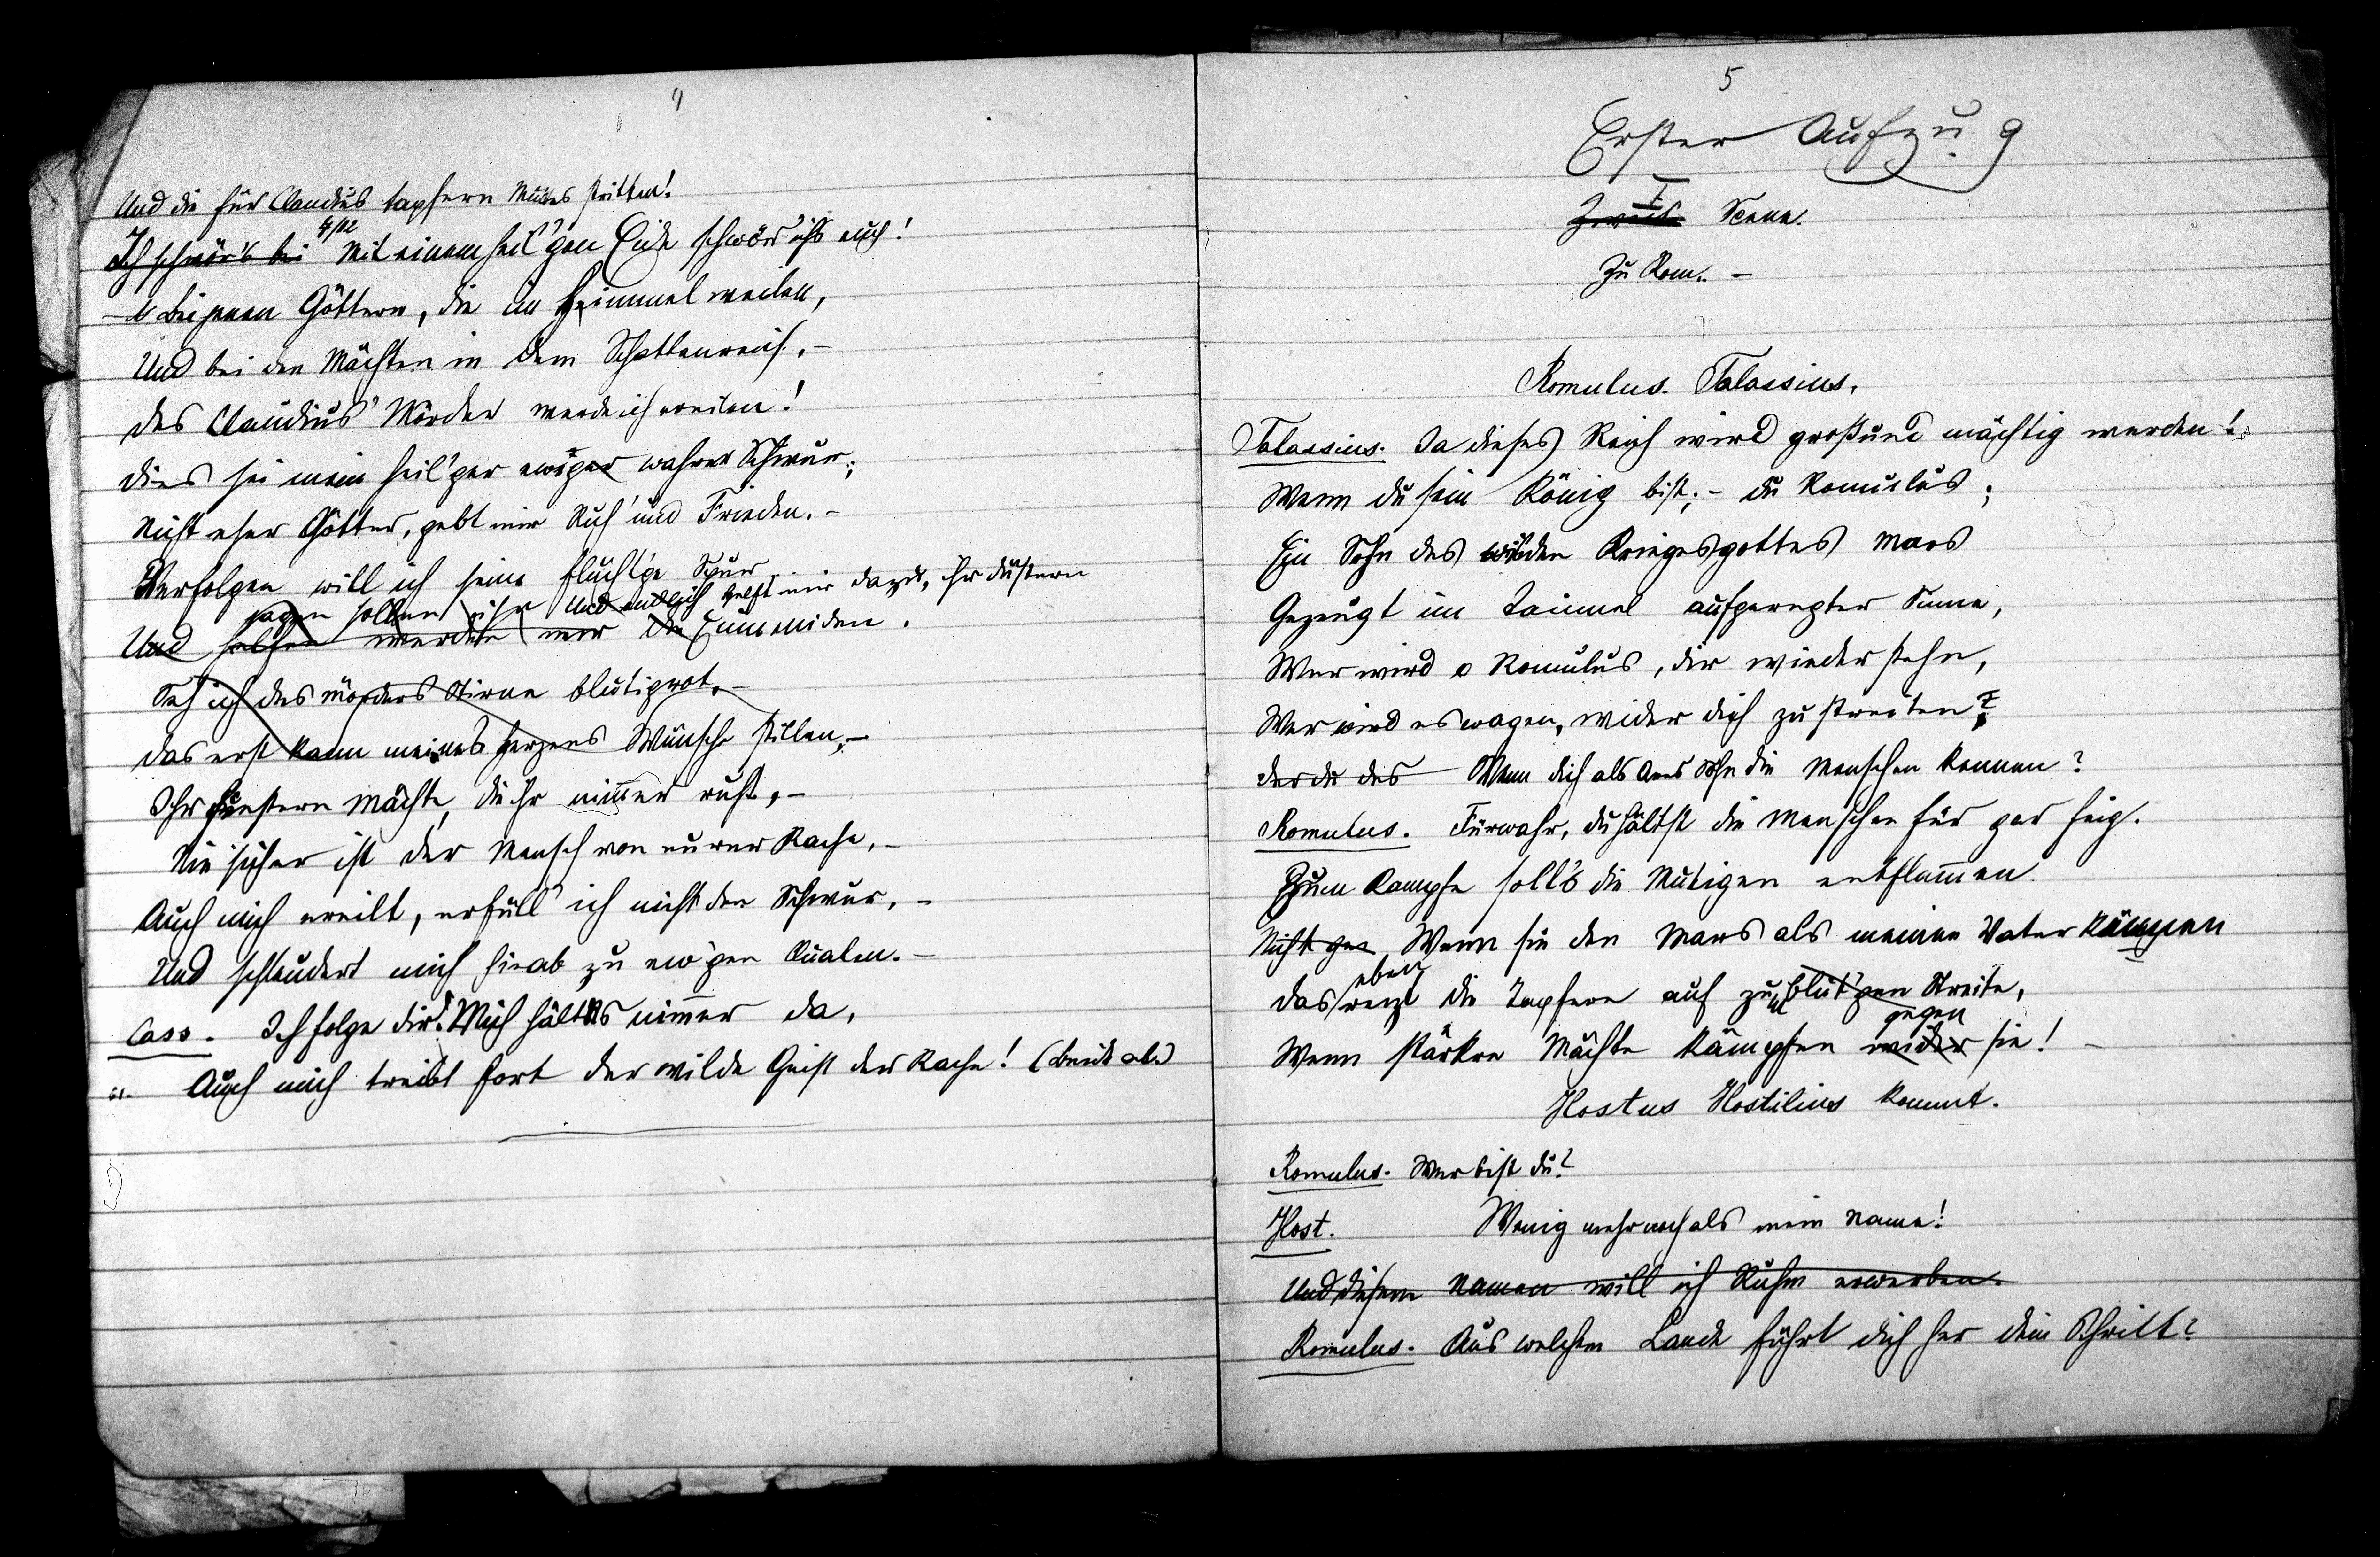 4
Und die für Claudius tapfern Mutes stritten!
4/12
Ich schwör's bei Mit einem heil'gen Eide schwör' ich's euch!
Bei jenen Göttern, die im Himmel weilen,
Und bei den Mächten in dem Schattenreich, –
Des Claudius' Mörder werde ich ereilen!
Dies sei mein heil'ger ew'ger wahrer Schwur;
Nicht eher Götter, gebt mir Ruh' und Frieden. –
Verfolgen will ich seine flücht'ge Spur
sagen sollen ihr und endlich helft mir dazu, ihr düstern
Und helfen werden mir die Eumeniden.
Seh ich des Mörders Stirne blutigrot, –
Das erst kann meines Herzens Wünsche stillen, –
Ihr finstern Mächte, die ihr nimmer ruht, –
Nie sicher ist der Mensch von eurer Rache, –
Auch mich ereilt, erfüll' ich nicht den Schwur, –
Und schleudert mich hinab zu ew'gen Qualen. –
Cass. Ich folge dir! Mich hält es nimmer da,
Auch mich treibt fort der wilde Geist der Rache! (Beide ab.)
5
Erster Aufzug
I
Zweite Scene.
Zu Rom. –
Romulus. Talassius.
Talassius. Ja dieses Reich wird groß und mächtig werden!
Wenn du sein König bist; – du Romulus;
Ein Sohn des wilden Kriegesgottes Mars
Gezeugt im Taumel aufgeregter Sinne,
Wer wird o Romulus, dir wiederstehn,
Wer wird es wagen, wider dich zu streiten?
der du des Wenn dich als Ares Sohn die Menschen kennen?
Romulus. Fürwahr, du hältst die Menschen für gar feig.
Zum Kampfe soll's die Mutigen entflammen
Nicht gar Wenn sie den Mars als meinen Vater kennen
eben
Das reizt die Tapfern auf zu blut'gen Streite,
gegen
Wenn stärkre Mächte kämpfen wider sie! –
Hostus Hostilius kommt.
Romulus. Wer bist du?
Host. Wenig mehr noch als mein Name!
Und diesem Namen will ich Ruhm erwerben.
Romulus. Aus welchem Lande führt dich her dein Schritt?